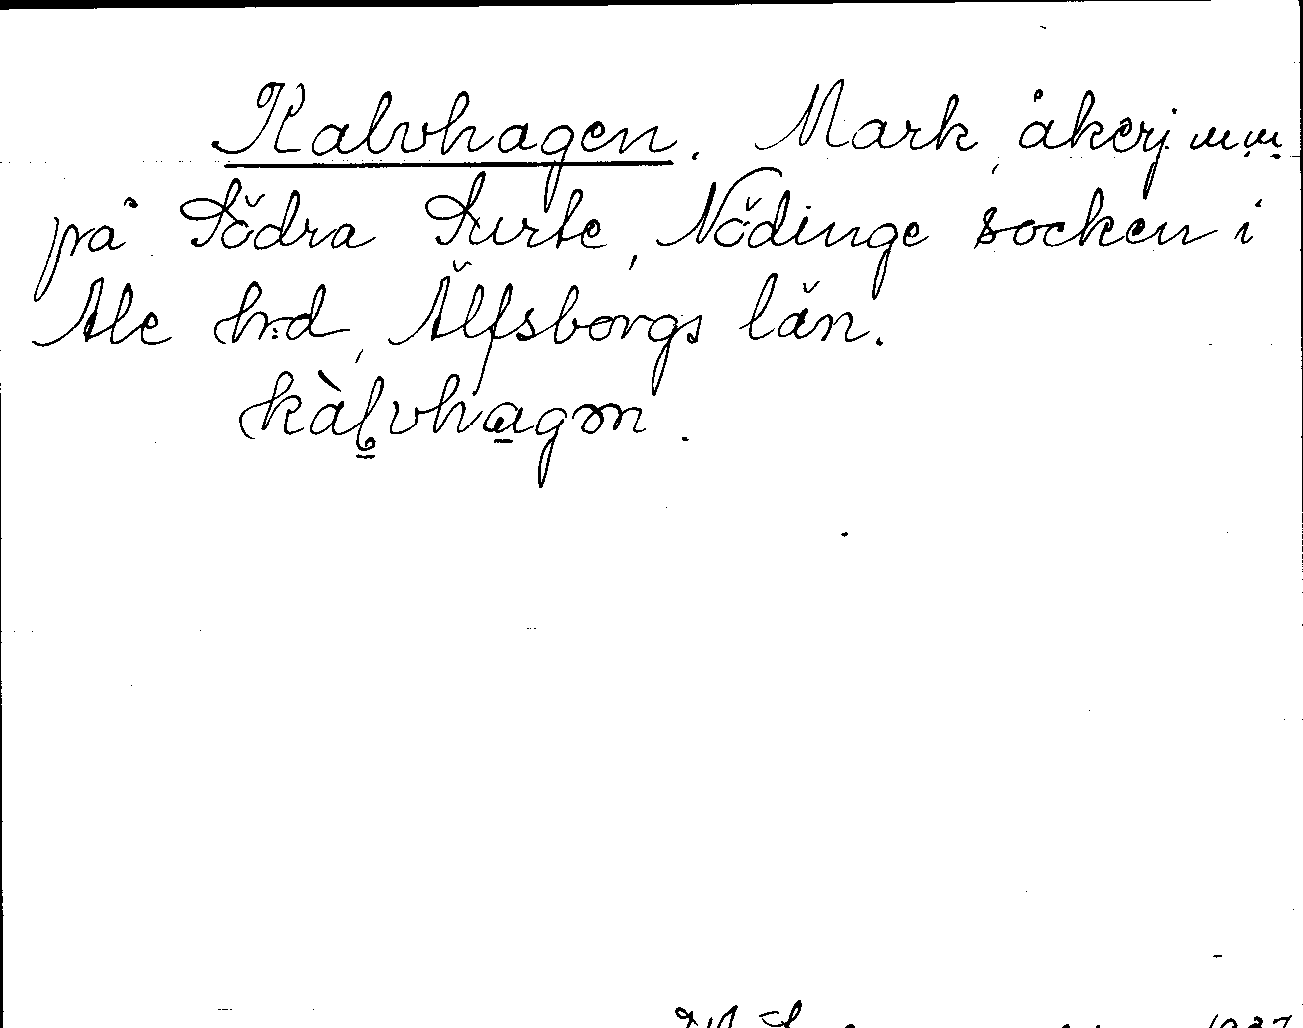 Kalvhagen. Mark, åkerj. m.m.
på Södra Surte, Nödinge socken i
Ale hrd, Älfsborgs län.
kàlvhagən.
1937